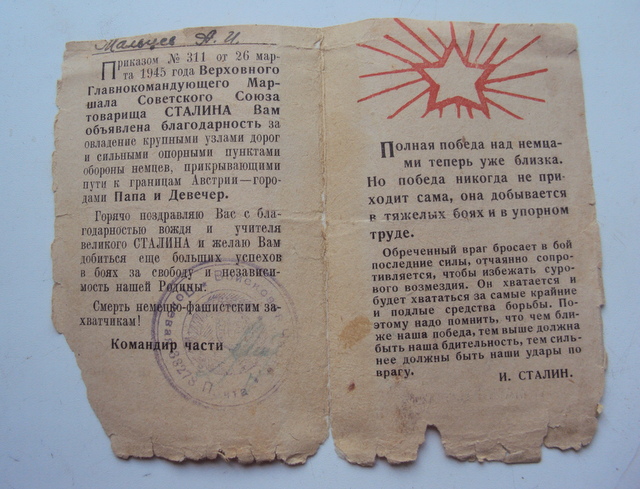 Мальцев А. И.
Приказом № 311 от 26 мар-
та 1945 года Верховного
Главнокомандующего Мар-
шала Советского Союза
товарища СТАЛИНА Вам
объявлена благодарность за
овладение крупными узлами дорог
и сильными опорными пунктами
обороны немцев, прикрывающими
пути к границам Австрии—горо-
дами Папа и Девечер.
Горячо поздравляю Вас с бла-
годарностью вождя и учителя
великого СТАЛИНА и желаю Вам
добиться еще больших успехов
в боях за свободу и независи-
мость нашей Родины.
Смерть немецко-фашистским за-
хватчикам!
Командир части
Полная победа над немца-
ми теперь уже близка.
Но победа никогда не при-
ходит сама, она добывается
в тяжелых боях и в упорном
труде.
Обреченный враг бросает в бой
последние силы, отчаянно сопро-
тивляется, чтобы избежать суро-
вого возмездия. Он хватается и
будет хвататься за самые крайние
и подлые средства борьбы. По-
этому надо помнить, что чем бли-
же наша победа, тем выше должна
быть наша бдительность, тем силь-
нее должны быть наши удары по
врагу.
И. СТАЛИН.